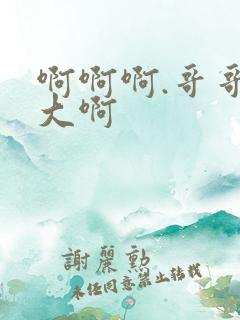 啊啊啊.哥哥
大啊
謝麗勲
未经同意禁止转载